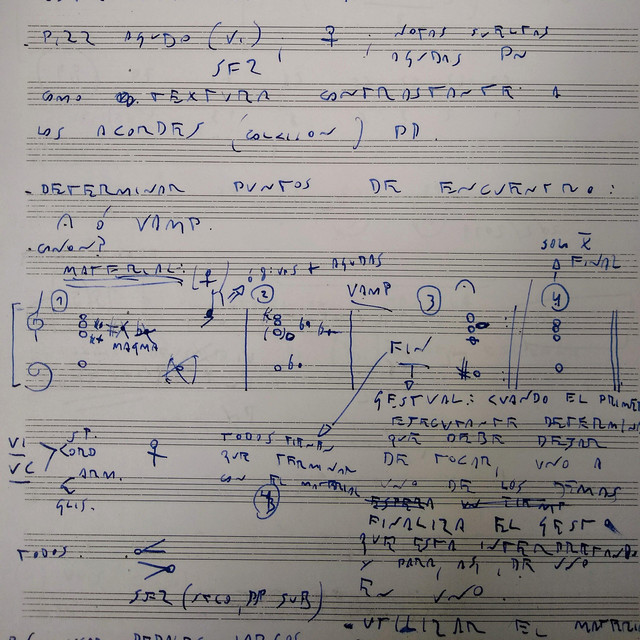 PIZZ AGUDO (VI) ; ; NOTAS SUELTAS
SFZ AGUDAS
COMO TEXTURA CONTRASTANTE A
LOS ACORDES (COLCHON) PP.
- DETERMINAR PUNTOS DE ENCUENTRO:
A Ó VAMP.
SOLO
FINAL
MATERIAL: + AGUDAS
1 2 VAMP 3 4
MAGMA
FIN
GESTUAL: CUANDO EL PRIMER
EJECUTANTE DETERMINA
VI SP. TODOS TIENEN QUE DEBE DEJAR
VC ORD QUE TERMINAR DE TOCAR, UNO A
ARM. CON EL MATERIAL UNO DE LOS DEMAS
GLIS. 4
FINALIZA EL GESTO
TODOS QUE ESTA INTERPRETANDO
Y PARA, ASI, DE UNO
SFZ (SECO, PP SUB) EN UNO.
- UTILIZAR EL